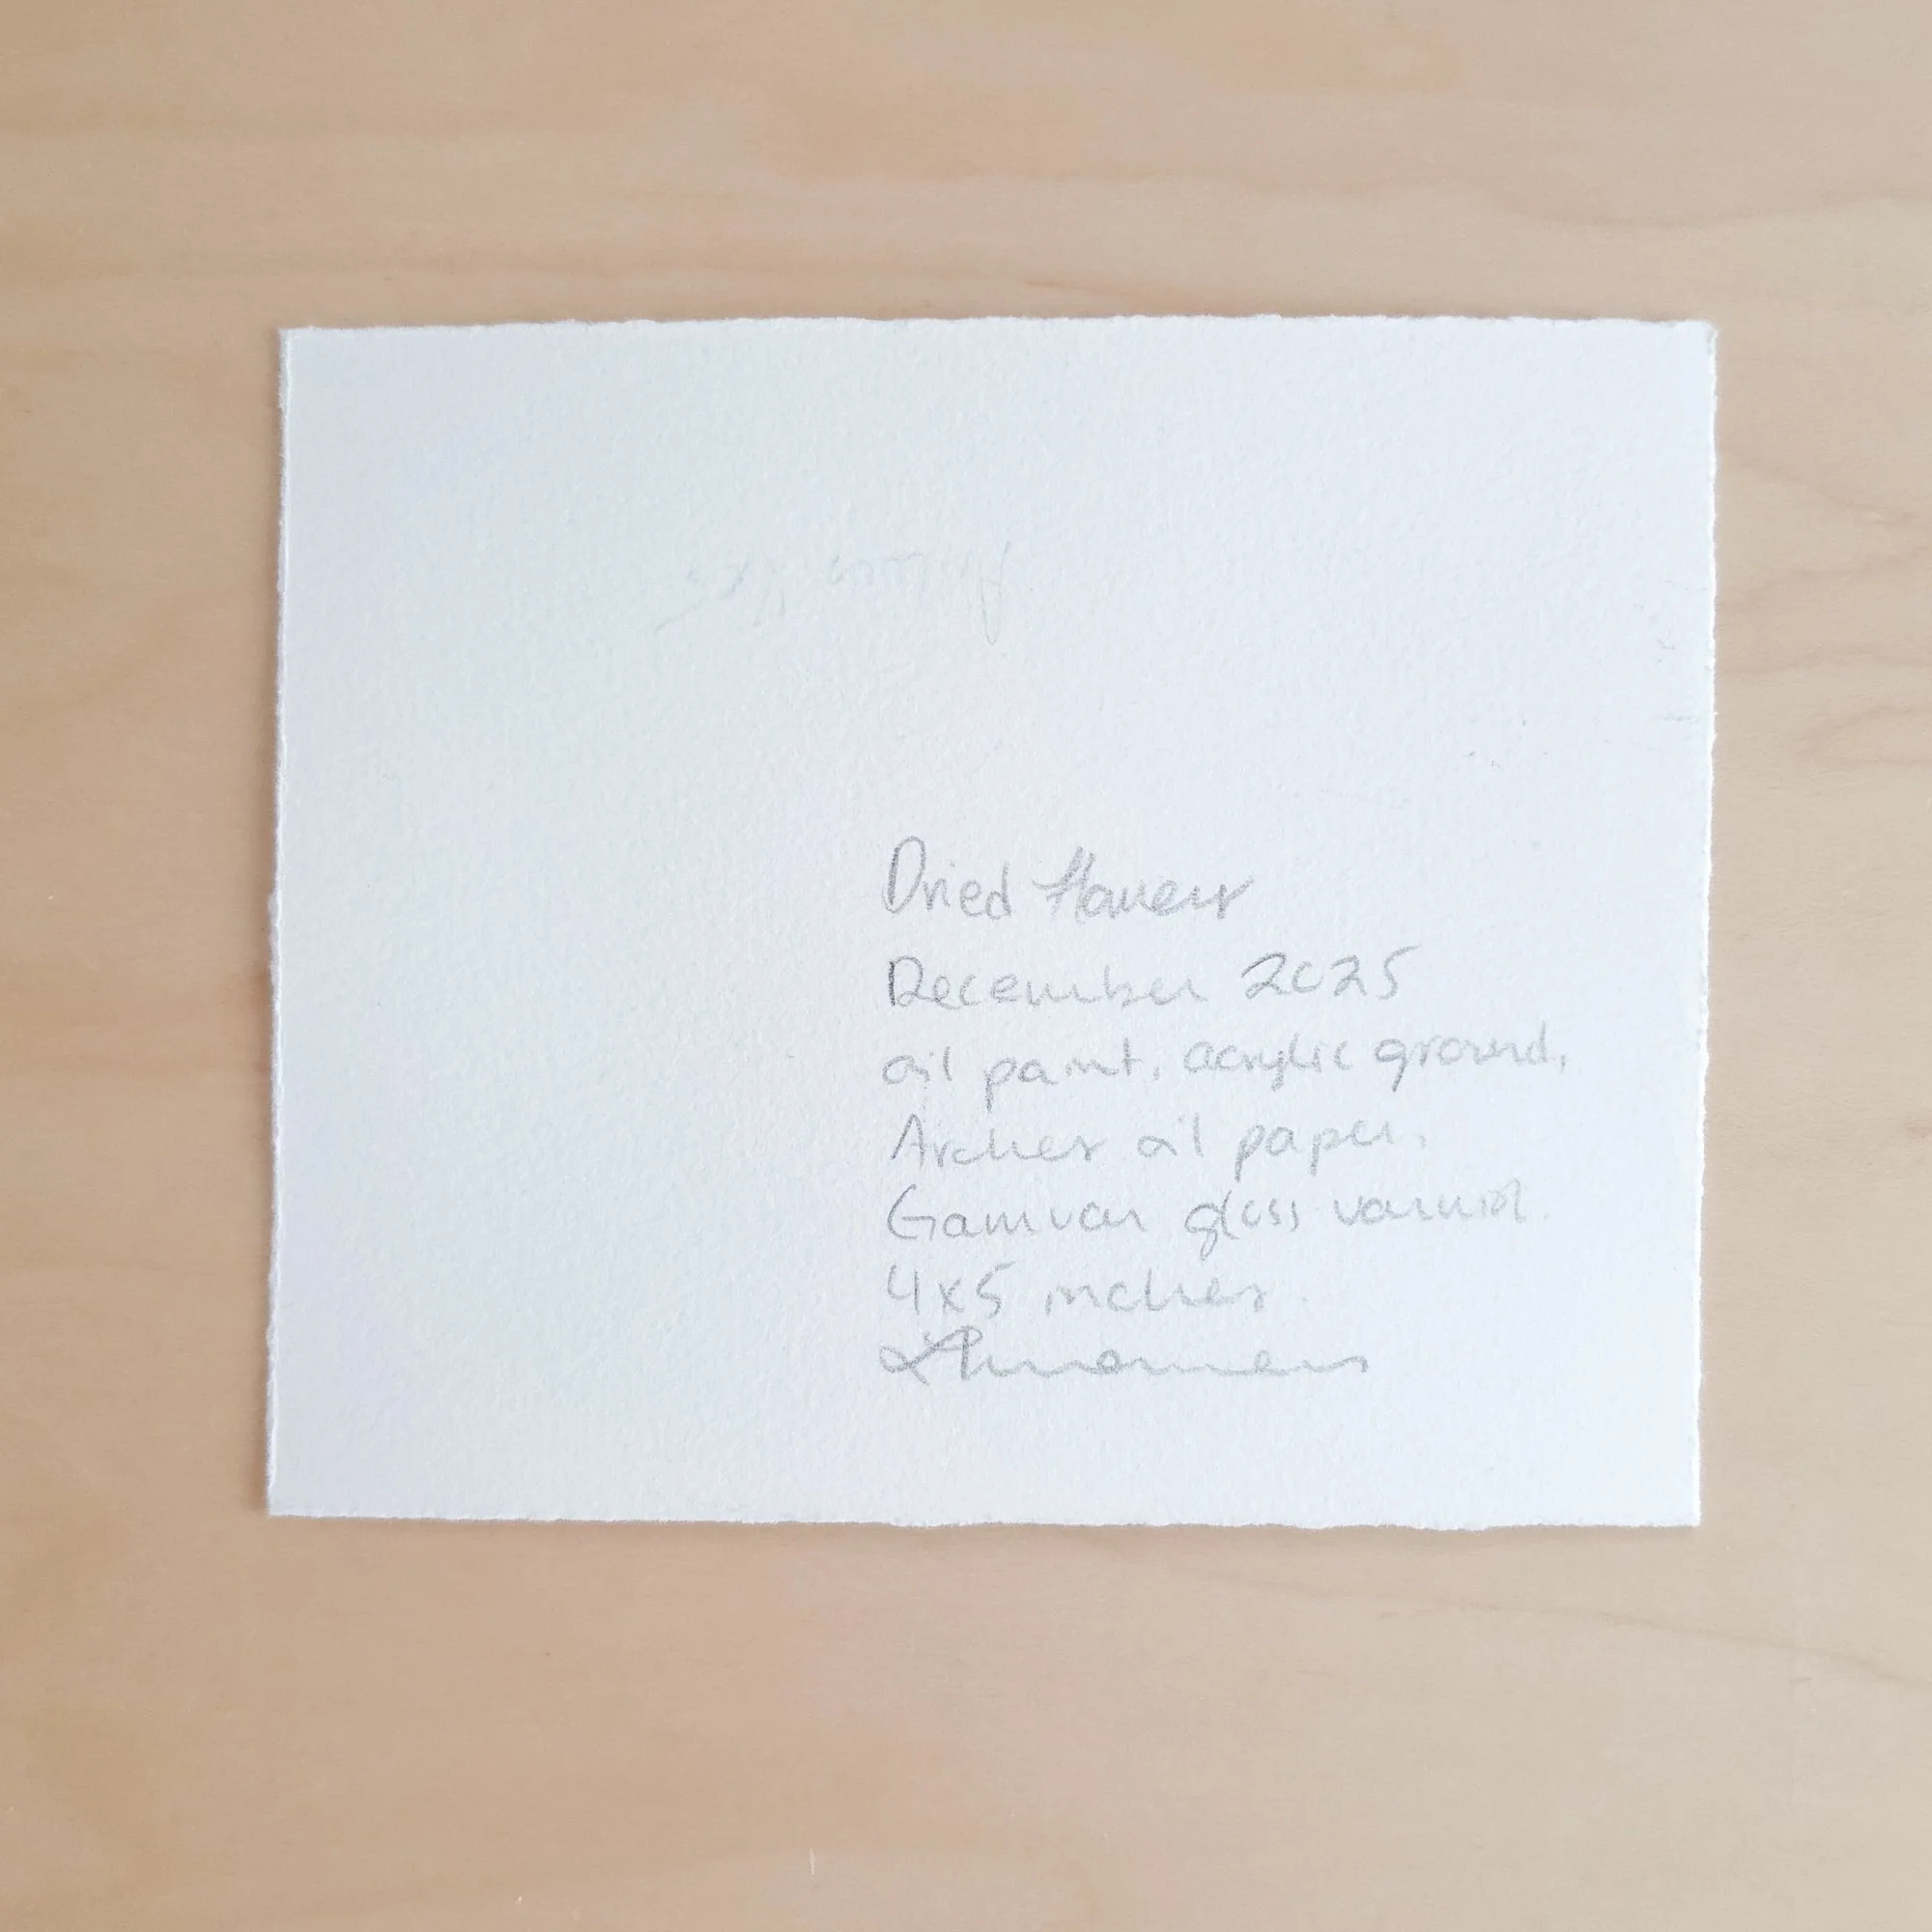 Dried flowers
December 2025
oil paint, acrylic ground,
Arches oil paper,
Gamvar gloss varnish.
4x5 inches.